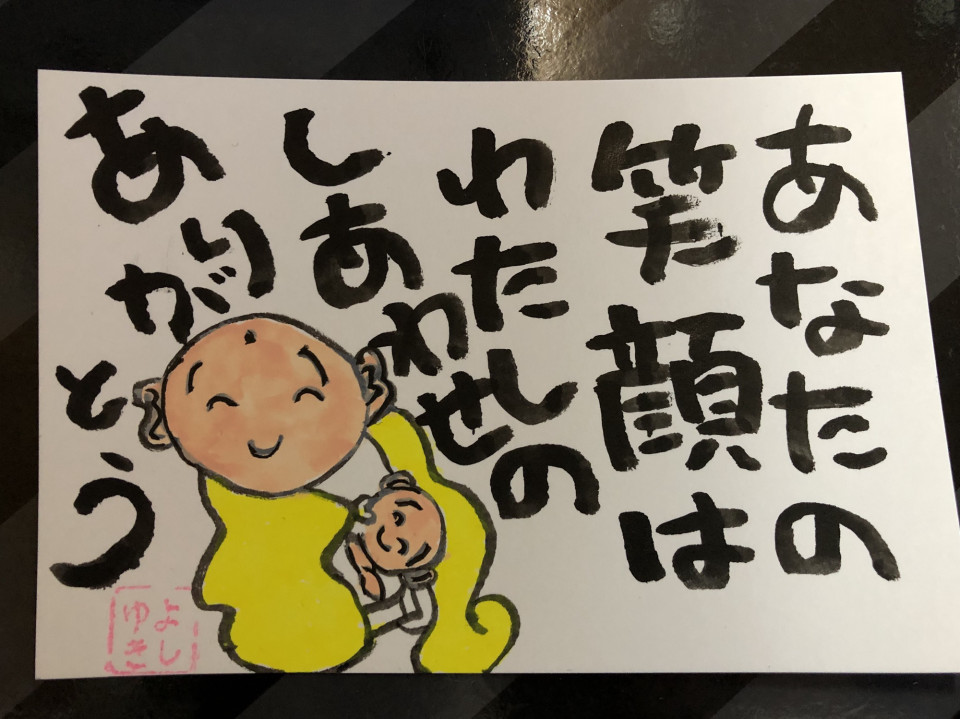 あなたの
笑顔は
わたしの
しあわせ
ありがとう
よし
ゆき